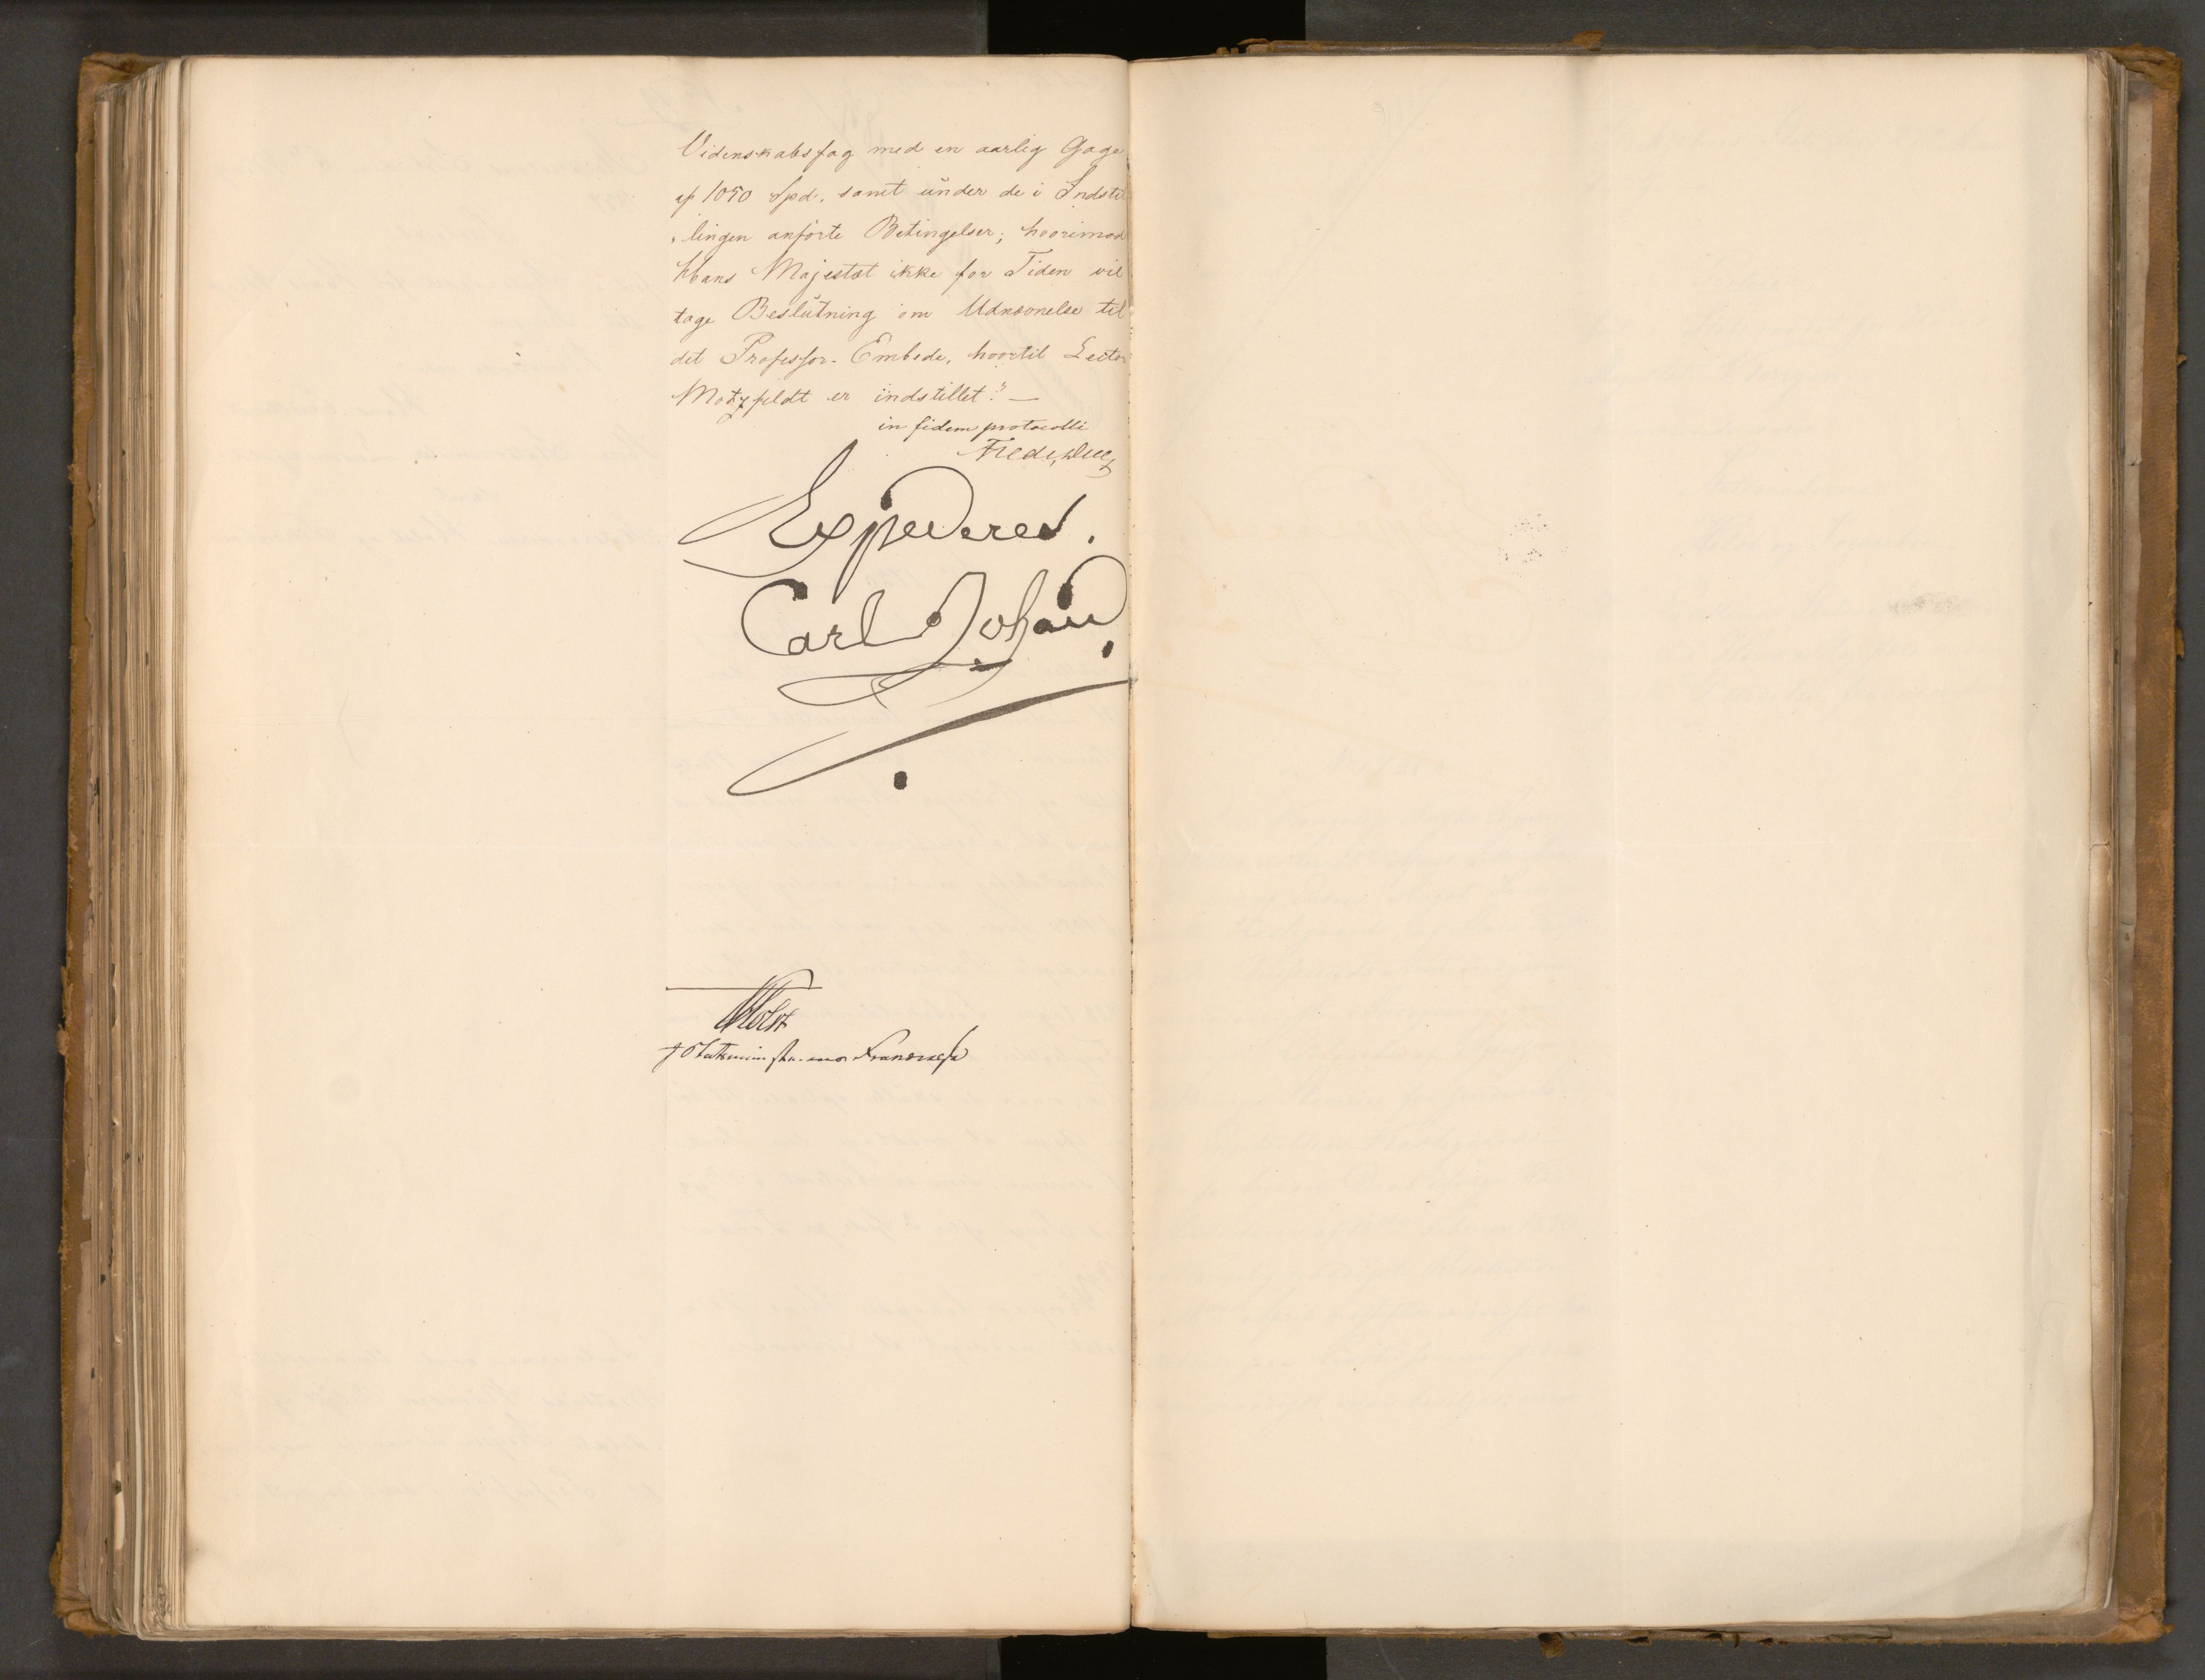 Videnskabsfag med en aarlig Gage
af 1050 Spd. samt under de i Indstil
„lingen anførte Betingelser; hvorimod
Hans Majestæt ikke for Tiden vil
tage Beslutning om Udnævnelse til
det Professor-Embede, hvortil Lector
Motzfeldt er indstillet." —
in fidem protocolli
Fred. Due
Expederes.
Carl Johan
Holst